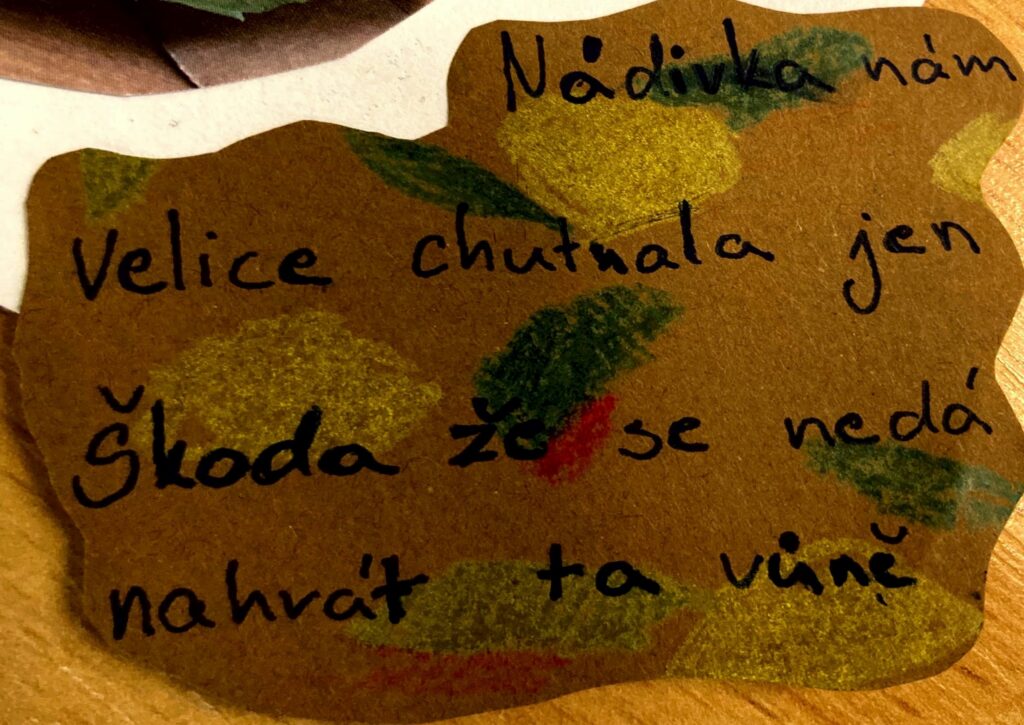 Nádivka nám
Velice chutnala jen
Škoda že se nedá
nahrát ta vůně